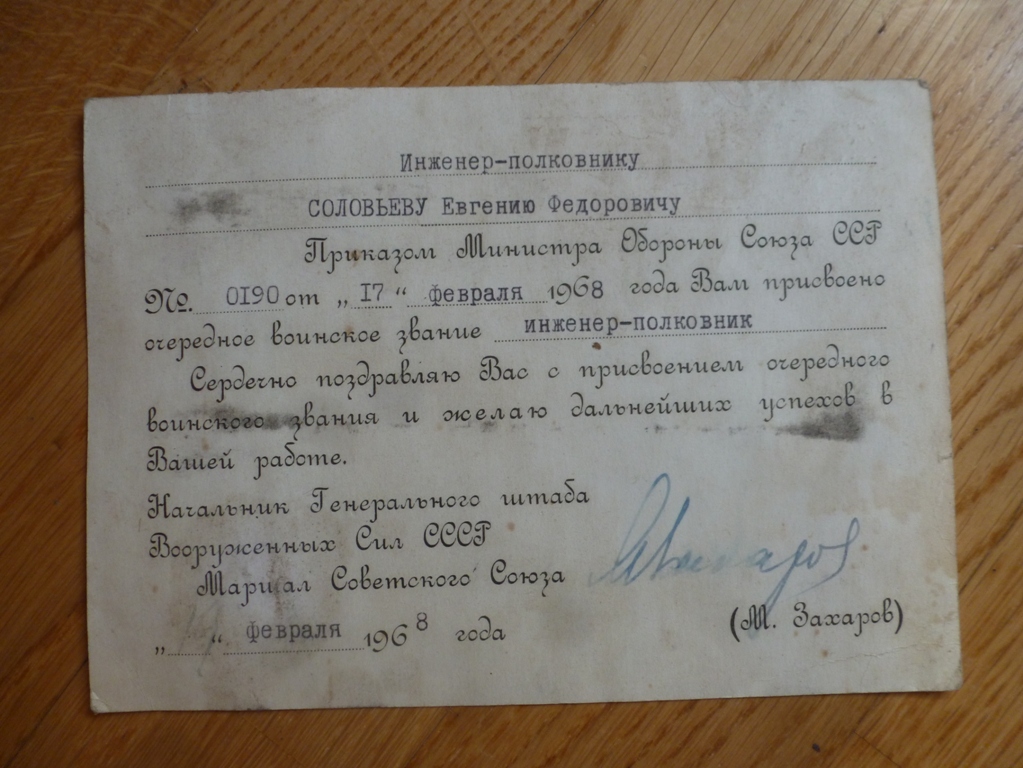 Инженер-полковнику
СОЛОВЬЕВУ Евгению Федоровичу
Приказом Министра Обороны Союза ССР
№. 0190 от „ 17 “ февраля 1968 года Вам присвоено
очередное воинское звание инженер-полковник
Сердечно поздравляю Вас с присвоением очередного
воинского звания и желаю дальнейших успехов в
Вашей работе.
Начальник Генерального штаба
Вооруженных Сил СССР
Маршал Советского Союза
„ “ февраля 1968 года
(М. Захаров)